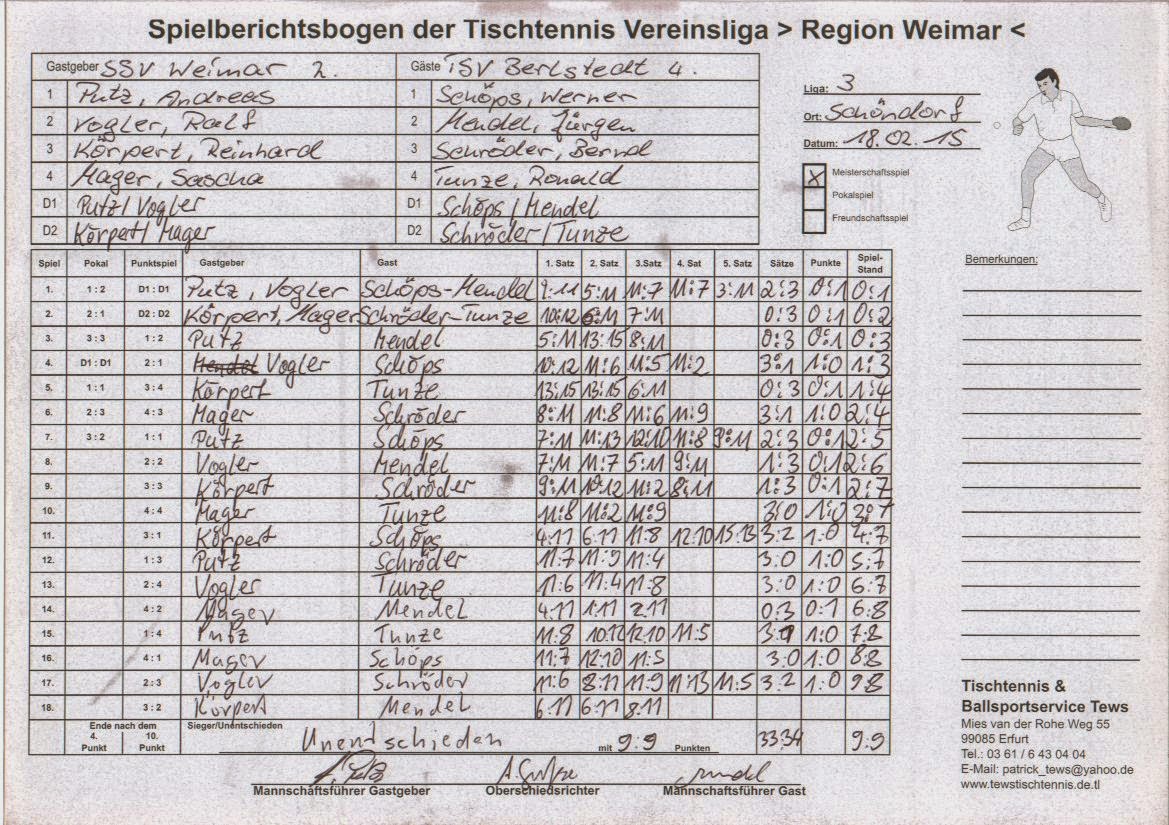 Spielberichtsbogen der Tischtennis Vereinsliga > Region Weimar <
Gastgeber SSV Weimar 2. Gäste TSV Berlstedt 4.
1 Putz, Andreas 1 Schöps, Werner
2 Vogler, Ralf 2 Mendel, Jürgen
3 Körpert, Reinhard 3 Schröder, Bernd
4 Mager, Sascha 4 Tunze, Ronald
D1 Putz / Vogler D1 Schöps / Mendel
D2 Körpert / Mager D2 Schröder / Tunze
Liga: 3
Ort: Schöndorf
Datum: 18.02.15
x Meisterschaftsspiel
Pokalspiel
Freundschaftsspiel
Spiel Pokal Punktspiel Gastgeber Gast 1. Satz 2. Satz 3.Satz 4. Sat 5. Satz Sätze Punkte Spiel-Stand
1. 1 : 2 D1 : D1 Putz, Vogler Schöps-Mendel 9:11 5:11 11:7 11:7 3:11 2:3 0:1 0:1
2. 2 : 1 D2 : D2 Körpert, Mager Schröder-Tunze 10:12 6:11 7:11 0:3 0:1 0:2
3. 3 : 3 1 : 2 Putz Mendel 5:11 13:15 8:11 0:3 0:1 0:3
4. D1 : D1 2 : 1 Mendel Vogler Schöps 10:12 11:6 11:5 11:2 3:1 1:0 1:3
5. 1 : 1 3 : 4 Körpert Tunze 13:15 13:15 6:11 0:3 0:1 1:4
6. 2 : 3 4 : 3 Mager Schröder 8:11 11:8 11:6 11:9 3:1 1:0 2:4
7. 3 : 2 1 : 1 Putz Schöps 7:11 11:13 12:10 11:8 9:11 2:3 0:1 2:5
8. 2 : 2 Vogler Mendel 7:11 11:7 5:11 9:11 1:3 0:1 2:6
9. 3 : 3 Körpert Schröder 9:11 10:12 11:2 8:11 1:3 0:1 2:7
10. 4 : 4 Mager Tunze 11:8 11:2 11:9 3:0 1:0 3:7
11. 3 : 1 Körpert Schöps 4:11 6:11 11:8 12:10 15:13 3:2 1:0 4:7
12. 1 : 3 Putz Schröder 11:7 11:9 11:4 3:0 1:0 5:7
13. 2 : 4 Vogler Tunze 11:6 11:4 11:8 3:0 1:0 6:7
14. 4 : 2 Mager Mendel 4:11 1:11 2:11 0:3 0:1 6:8
15. 1 : 4 Putz Tunze 11:8 10:12 12:10 11:5 3:1 1:0 7:8
16. 4 : 1 Mager Schöps 11:7 12:10 11:5 3:0 1:0 8:8
17. 2 : 3 Vogler Schröder 11:6 8:11 11:9 11:13 11:5 3:2 1:0 9:8
18. 3 : 2 Körpert Mendel 6:11 6:11 8:11
Ende nach dem Sieger/Unentschieden
4. Punkt 10. Punkt Unentschieden mit 9:9 Punkten 33:34 9:9
Mannschaftsführer Gastgeber Oberschiedsrichter Mannschaftsführer Gast
Bemerkungen:
Tischtennis &
Ballsportservice Tews
Mies van der Rohe Weg 55
99085 Erfurt
Tel.: 03 61 / 6 43 04 04
E-Mail: patrick_tews@yahoo.de
www.tewstischtennis.de.tl